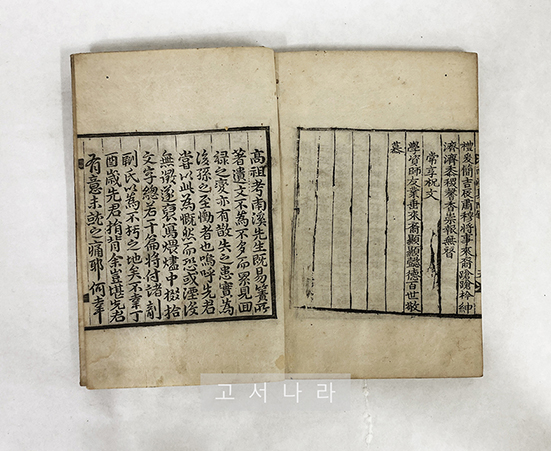 禮爰簡吉辰肅穆將事來裔蹌蹌衿紳
濟濟黍稷馨香崇報無替
常享祝文
學資師友業垂來裔顯顯懿德百世敬
慕
高祖考南溪先生旣易簀所
著遺文不爲不多而累見回
祿之變亦有散失之患實爲
後孫之至慟者也嗚呼先君
嘗以此爲慨然而恐或湮沒
無遂裒寫煨燼中掇拾
文字總若干篇將付諸剞
劂氏以爲不朽之地矣不幸丁
酉歲先君捐背余豈堪先君
有意未就之痛耶何幸
고서나라